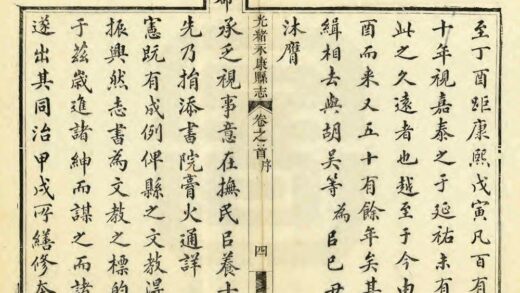 至丁酉距康熙戊寅凡百有
十年視嘉泰之于延祐未有
此之久遠者也越至于今由
酉而来又五十有餘年矣其
緝相去與胡吳等為吕巳丑
沐膺
光緒永康縣志 卷之首 序 四
承乏視事意在撫民吕養士
先乃捐添書院膏火通詳
憲既有成例俾縣之文教
振興然志書為文教之標的
于茲歲進諸紳而謀之而諸
遂出其同治甲戌所繕修本